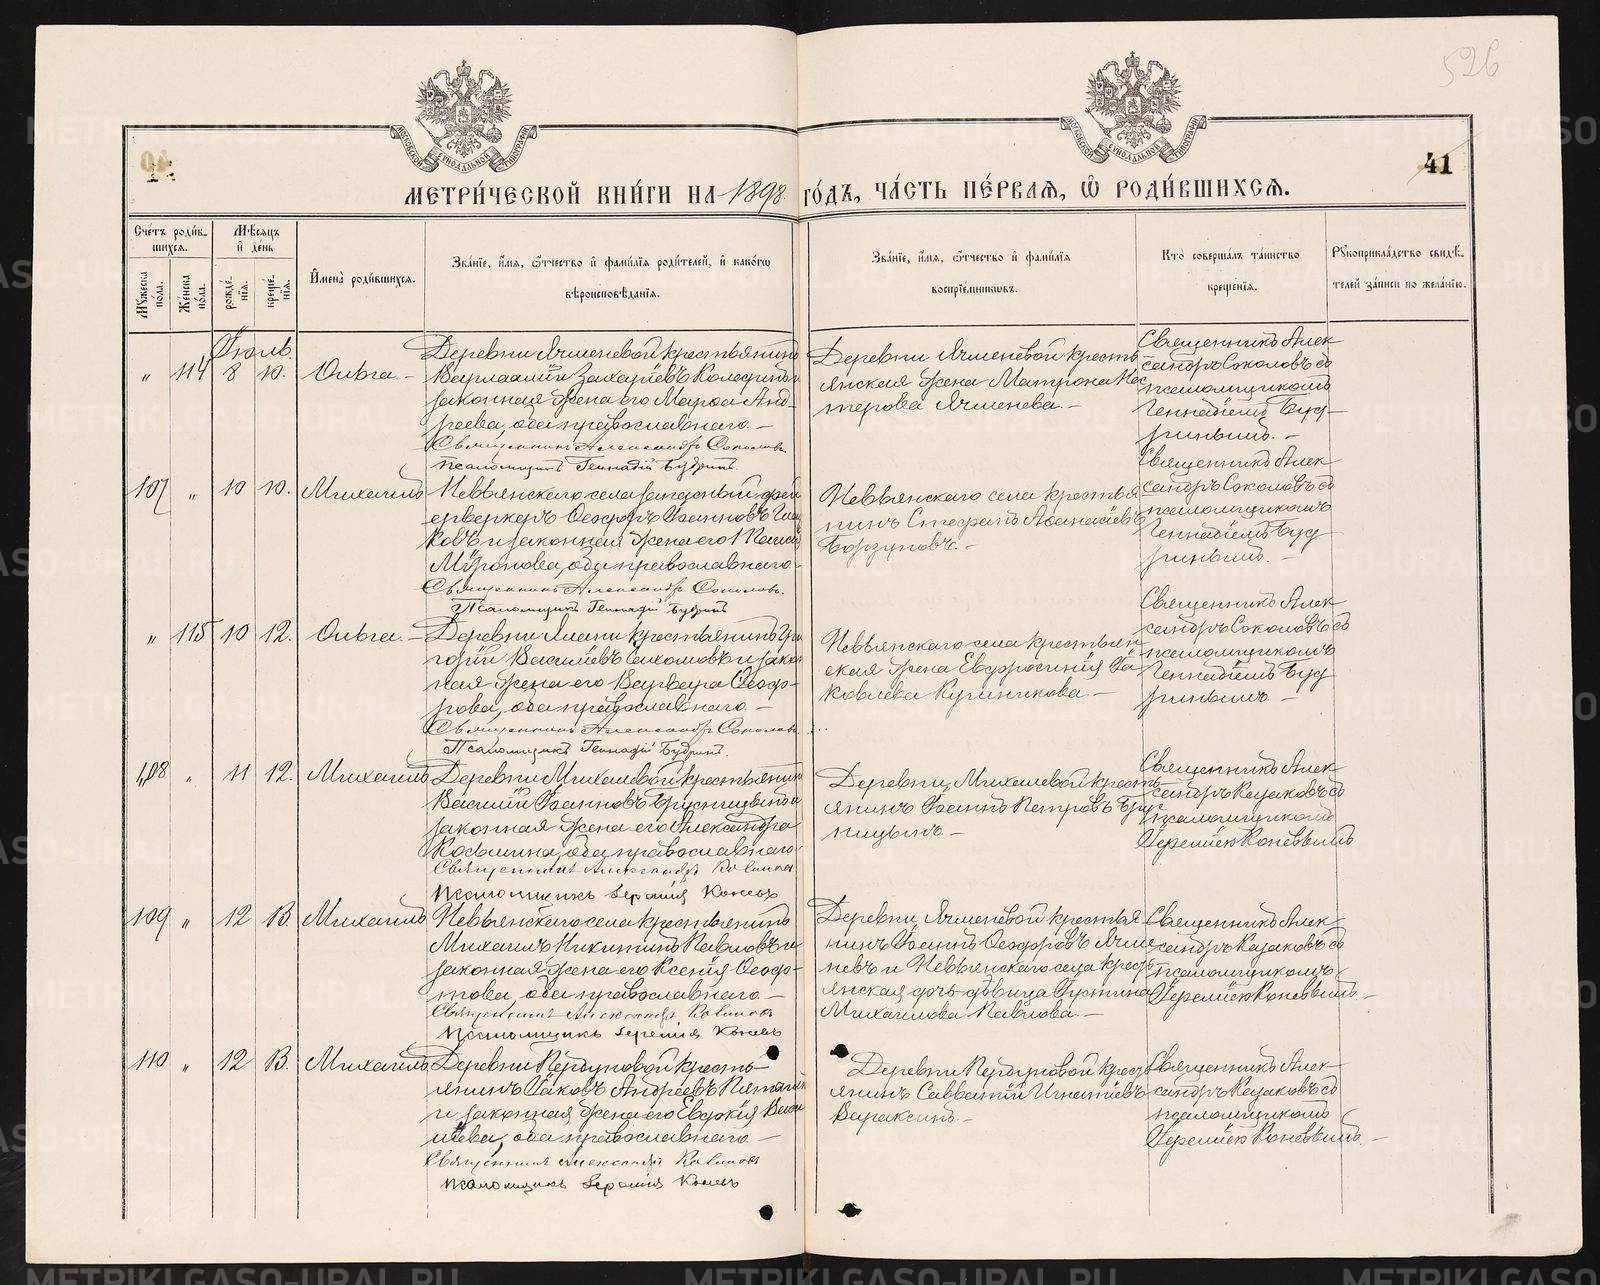 526
МОСКОВСКОЙ СѴНОДАЛЬНОЙ ТИПОГРАФІИ
МОСКОВСКОЙ СѴНОДАЛЬНОЙ ТИПОГРАФІИ
41
МЕТРИ́ЧЕСКОЙ КНИ́ГИ НА 1898 ГО́ДЪ, ЧА́СТЬ ПЕ́РВАѦ, Ѽ РОДИ́ВШИХСѦ.
Сче́тъ роди́вшихсѧ.
Мꙋ́жеска по́ла.
Же́нска по́ла.
Мѣ́сѧцъ и҆ де́нь
рожде́нїѧ.
креще́нїѧ.
И҆мена̀ роди́вшихсѧ.
Зва́нїе, и҆́мѧ, ѻ҆́тчество и҆ фами́лїѧ роди́телей, и҆ како́гѡ
вѣроисповѣ́данїѧ.
Зва́нїе, и҆́мѧ, ѻ҆́тчество и҆ фами́лїѧ
воспрїе́мникѡвъ.
Кто̀ соверша́лъ та́инство
креще́нїѧ.
Рꙋкоприкла́дство свидѣ́телей за́писи по жела́нїю.
Іюль
„ 114 8 10. Ольга. —
Деревни Ячменевой крестьянинъ
Варлаамій Захаріевъ
законная жена его Марѳа Анд-
реева, оба православнаго. —
Священникъ Александръ Соколовъ
Псаломщикъ Геннадій Будринъ.
Деревни Ячменевой кресть-
янская жена Матрона Нес
терова Ячменева. —
Священникъ Алек-
сандръ Соколовъ съ
псаломщикомъ
Геннадіемъ Буд-
ринымъ. —
107 „ 10 10. Михаилъ
Невьянскаго села запасный фей
ерверкеръ Ѳеодоръ Іоанновъ
ковъ и законная жена его
Миронова, оба православнаго.
Священникъ Александръ Соколовъ.
Псаломщикъ Геннадій Будринъ
Невьянскаго села крестья
нинъ Стефанъ Аѳанасіевъ
Борзуновъ. —
Священникъ Алек
сандръ Соколовъ съ
псаломщикомъ
Геннадіемъ Буд
ринымъ. —
„ 115 10 12. Ольга. —
Деревни крестьянинъ Гри
горій Василіевъ и закон
ная жена его Варвара Ѳеодо-
рова, оба православнаго —
Священникъ Александръ Соколовъ
Псаломщикъ Геннадій Будринъ.
Невьянскаго села крестьян
ская жена Евфросинія Іа
ковлева —
Священникъ Алек
сандръ Соколовъ съ
псаломщикомъ
Геннадіемъ Буд
ринымъ —
108 „ 11 12. Михаилъ
Деревни Михалевой крестьянинъ
Василій Іоанновъ Брусницынъ и
законная жена его Александра
Косьмина, оба православнаго.
Священникъ Александръ Казаковъ
Псаломщикъ Іеремія Коневъ
Деревни Михалевой кресть
янинъ Іоаннъ Петровъ Брус
ницынъ —
Священникъ Алек
сандръ Казаковъ съ
псаломщикомъ
Іереміею Коневымъ
109 „ 12 13. Михаилъ
Невьянскаго села крестьянинъ
Михаилъ Никитинъ Павловъ и
законная жена его Ксенія Ѳеодо-
това, оба православнаго —
Священникъ Александръ Казаковъ
Псаломщикъ Іеремія Коневъ
Деревни Ячменевой крестья
нинъ Іоаннъ Ѳеодоровъ Ячме
невъ и Невьянскаго села кресть
янская дочь дѣвица Іустина
Михаилова Павлова. —
Священникъ Алек
сандръ Казаковъ съ
псаломщикомъ
Іереміею Коневымъ. —
110 „ 12 13. Михаилъ
Деревни Пердуновой кресть-
янинъ Іаковъ Андреевъ
и законная жена его Евдокія Васи
ліева, оба православнаго —
Священникъ Александръ Казаковъ
Псаломщикъ Іеремія Коневъ
Деревни Пердуновой кресть
янинъ Савватій Игнатіевъ
Вараксинъ. —
Священникъ Алек-
сандръ Казаковъ съ
псаломщикомъ
Іереміею Коневымъ. —
METRIKI.GASO-URAL.RU